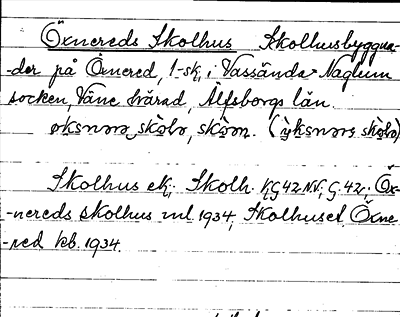 Öxnereds Skolhus Skolhusbyggna-
-der på Öxnered, 1-sk, i Vassända-Naglum
socken, Väne härad, Älfsborgs län.
øksnərə skolə, skoən. (ỳksnərs skolə)
Skolhus ek. Skolh. K.G 42 N.V., G. 42. Öx-
-nereds skolhus ml. 1934, Skolhuset, Öxne-
-red kb. 1934.